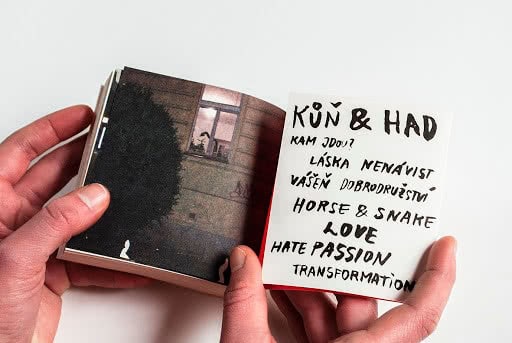 KŮŇ & HAD
KAM JDOU?
LÁSKA NENÁVIST
VÁŠEŇ DOBRODRUŽSTVÍ
HORSE & SNAKE
LOVE
HATE PASSION
TRANSFORMATION